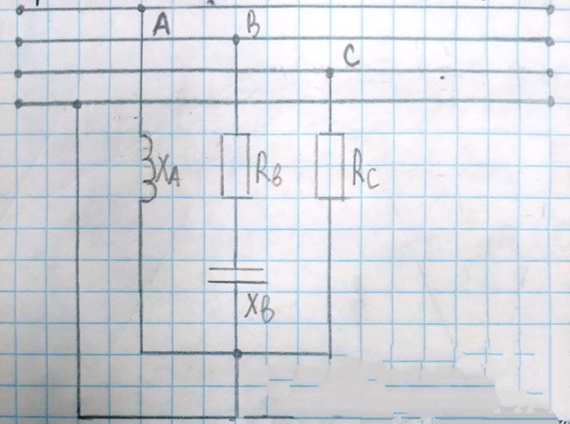 A
B
C
XA
RB
RC
XB